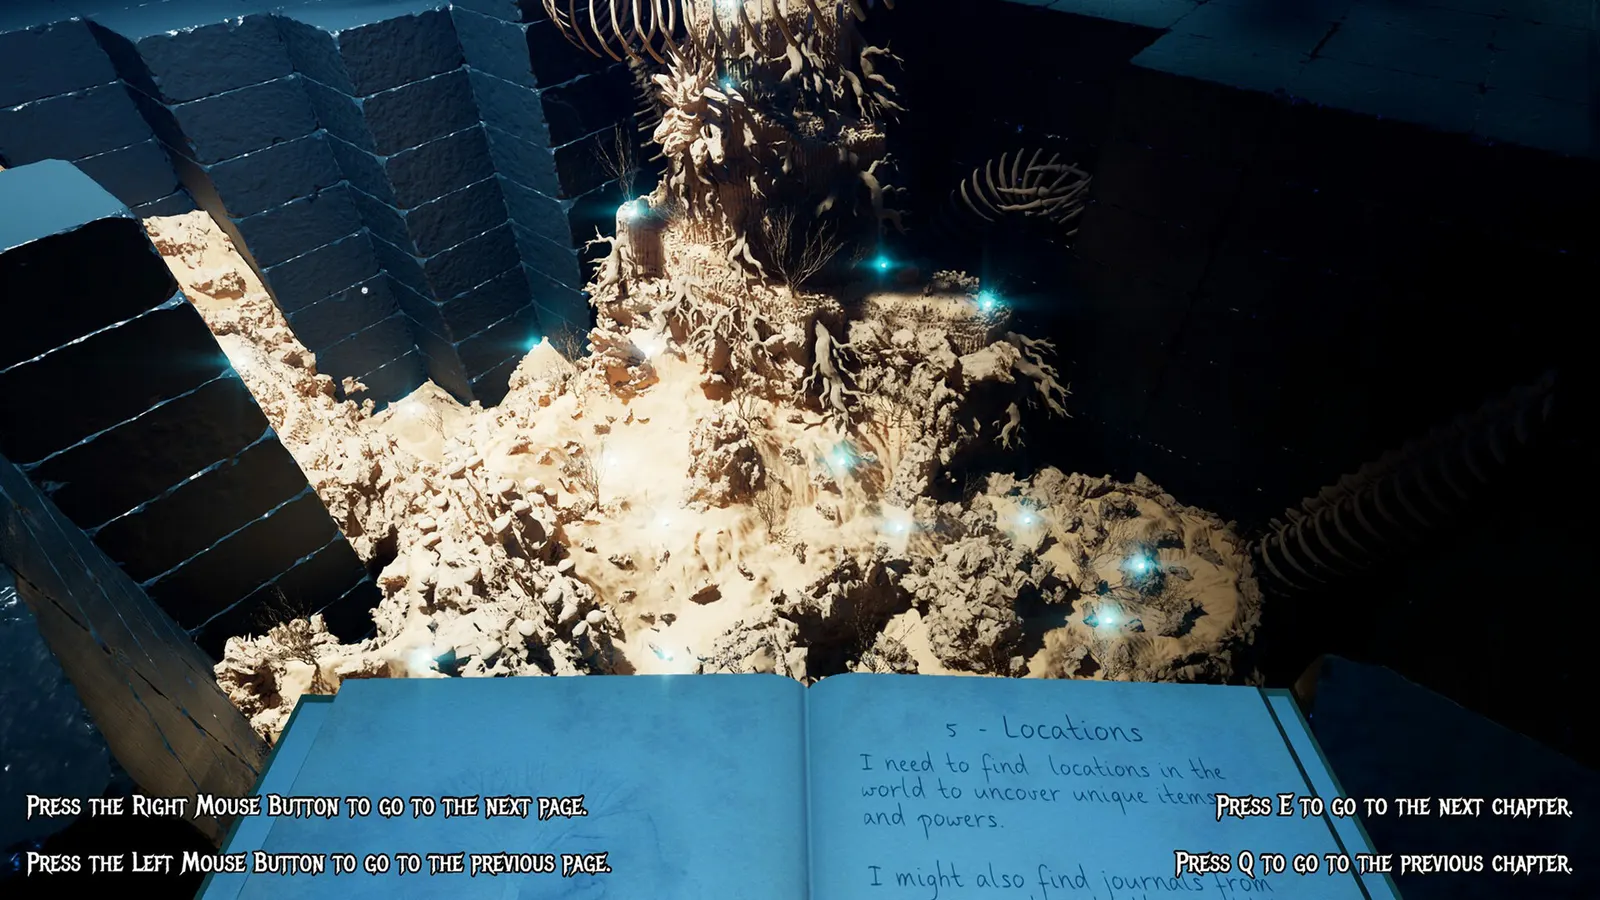 5 - Locations
I need to find locations in the
world to uncover unique items
and powers.
I might also find journals from
Press the Right Mouse Button to go to the next page.
Press the Left Mouse Button to go to the previous page.
Press E to go to the next chapter.
Press Q to go to the previous chapter.